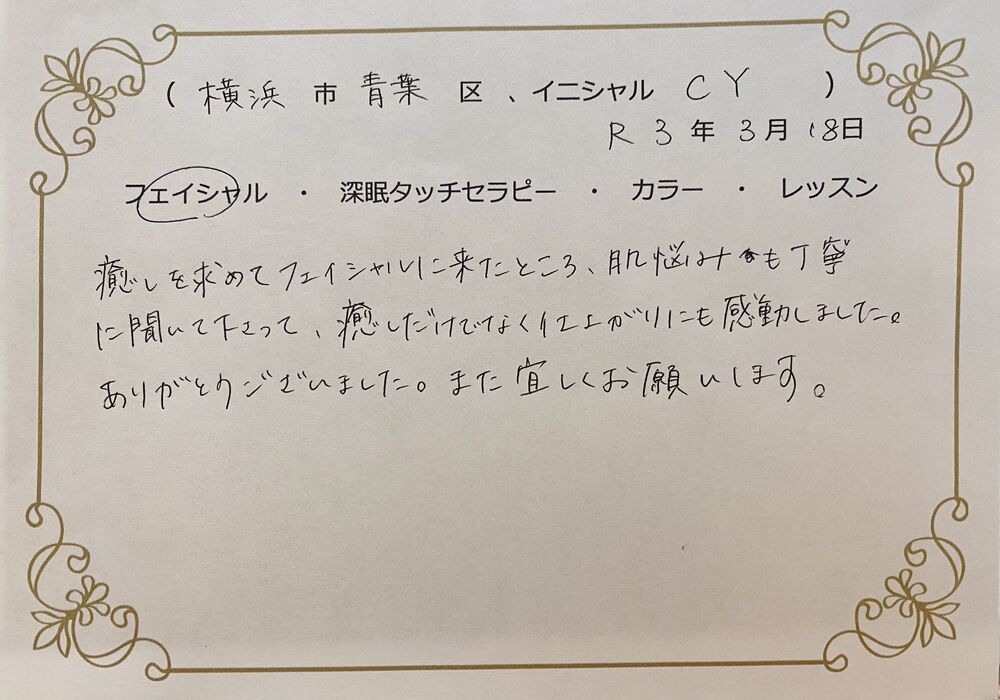 ( 横浜 市 青葉 区 、イニシャル CY )
R 3 年 3 月 18日
フェイシャル ・ 深眠タッチセラピー ・ カラー ・ レッスン
癒しを求めてフェイシャルに来たところ、肌悩み も丁寧
に聞いて下さって、癒しだけでなく仕上がりにも感動しました。
ありがとうございました。また宜しくお願いします。